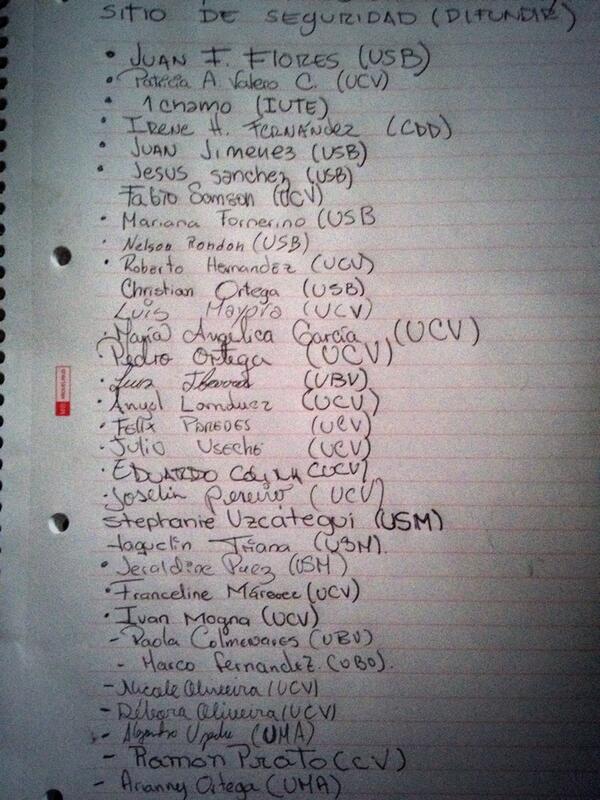 SITIO DE SEGURIDAD (DIFUNDIR)
• JUAN F. FLORES (USB)
• Patricia A. Valero C. (UCV)
• 1 chamo (IUTE)
• IRENE H. FERNÁNDEZ (CDD)
• JUAN Jimenez (USB)
• Jesus sanchez (USB)
Fabio Samson (UCV)
• Mariana Fornerino (USB
• Nelson Rondon (USB)
• Roberto Hernandez (UCV)
Christian Ortega (USB)
Luis (UCV)
• María Angélica García (UCV)
Pedro Ortega (UCV)
• Luis (UBV)
• Angel (UCV)
• Felix PAREDES (UCV)
• Julio USECHE (UCV)
• EDUARDO COLINA (UCV)
• Joselin Pereira (UCV)
Stephanie Uzcátegui (USM)
Jaquelin Triana (USM).
• Jeraldine Paez (USM)
• Franceline (UCV)
• Ivan Mogna (UCV)
- Paola Colmenares (UBV)
- Marco fernandez. (UBV).
- Nicole Oliveira (UCV)
- Débora Oliveira (UCV)
- Alejandro (UMA)
- Ramon Prato (CV)
- Arianny Ortega (UMA)